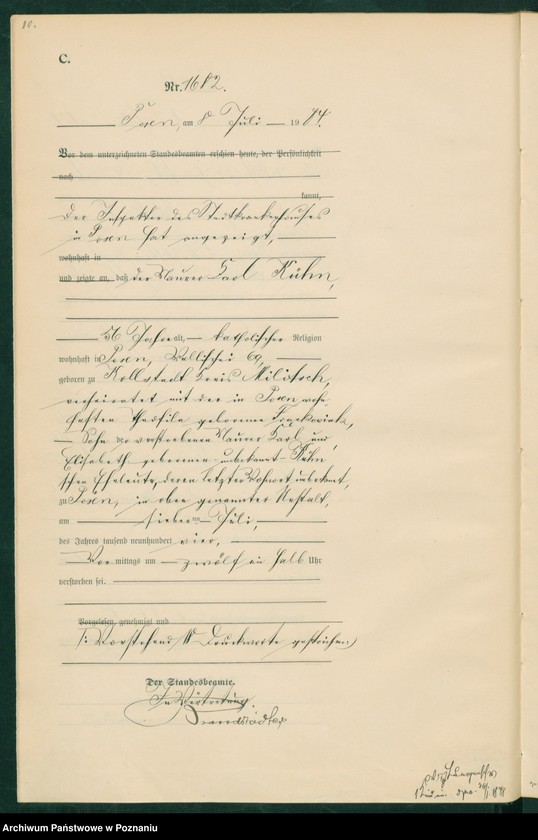 10.
C.
Nr. 1682.
Posen, am 8 Juli 1904.
Vor dem unterzeichneten Standesbeamten erschien heute, der Persönlichkeit
nach
kannt,
Der Inspektor des Stadtkrankenhauses
in Posen hat angezeigt,
wohnhaft in
und zeigte an, daß der Maurer Karl Kühn,
56 Jahre alt, katholischer Religion
wohnhaft in Posen, Wallischei 69,
geboren zu Kreis Militsch,
verheiratet mit der in Posen wohn¬
haften geborene
Sohn der verstorbenen Maurer Karl und
Elisabeth geborenen unbekannt Kühn
schen Eheleute, deren letzter Wohnort unbekannt,
zu Posen, in oben genannter Anstalt,
am sieben ten Juli,
des Jahres tausend neunhundert vier,
Vor mittags um zwölf ein halb Uhr
verstorben sei.
Vorgelesen, genehmigt und
/: Vorstehend Druckworte gestrichen
Der Standesbeamte.
In Vertretung.
Brandstädter
Archiwum Państwowe w Poznaniu